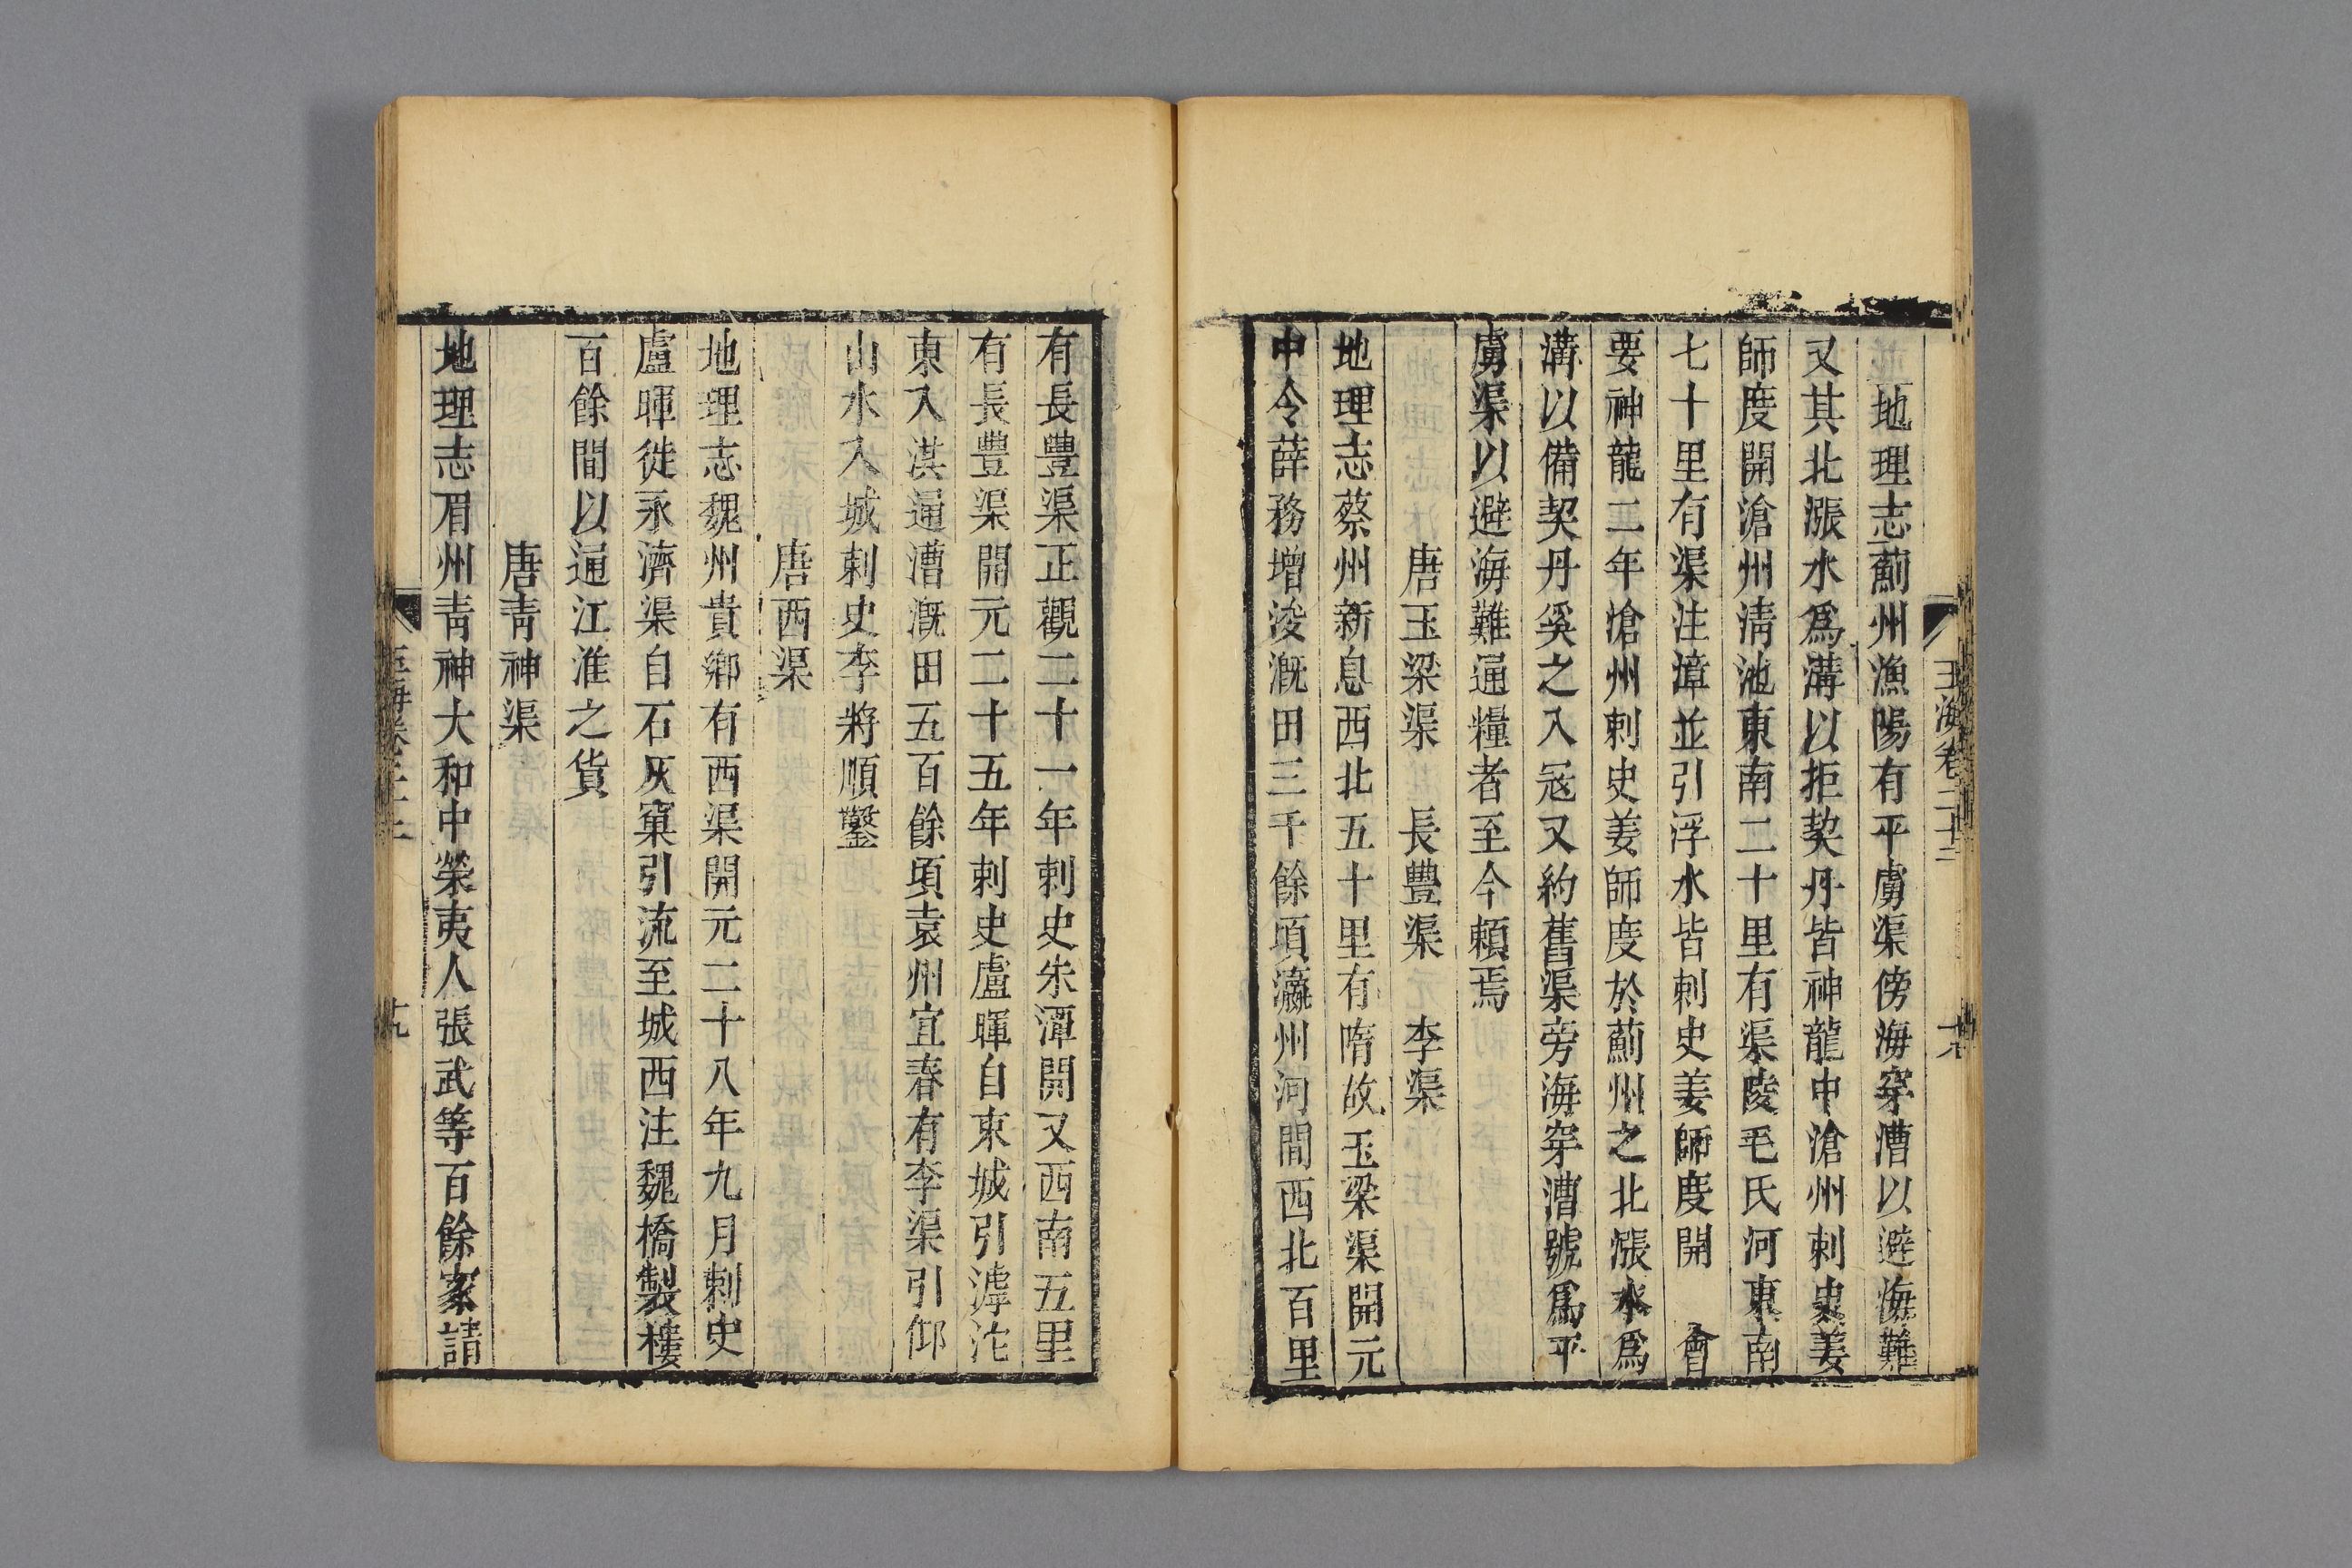 地理志薊州漁陽有平虜渠傍海穿漕以避海難
又其北漲水爲溝以拒契丹皆神龍中滄州刺史姜
師度開滄州清池東南二十里有渠陵毛氏河東南
七十里有渠注漳並引浮水皆刺史姜師度開　會
要神龍二年滄州刺史姜師度於薊州之北漲水爲
溝以備契丹奚之入宼又約舊渠旁海穿漕號爲平
虜渠以避海難通糧者至今頼焉
唐玉梁渠　長豐渠　李渠
地理志蔡州新息西北五十里有隋故玉梁渠開元
中令薛務增浚溉田三千餘頃瀛州河間西北百里
玉海卷二十二
十八
有長豐渠正觀二十一年刺史朱潭開又西南五里
有長豐渠開元二十五年刺史盧暉自束城引滹沱
東入淇通漕溉田五百餘頃袁州宜春有李渠引仰
山水入城刺史李將順鑿
唐西渠
地理志魏州貴鄉有西渠開元二十八年九月刺史
盧暉徙永濟渠自石灰窠引流至城西注魏橋製樓
百餘間以通江淮之貨
唐青神渠
地理志眉州青神大和中榮夷人張武等百餘家請